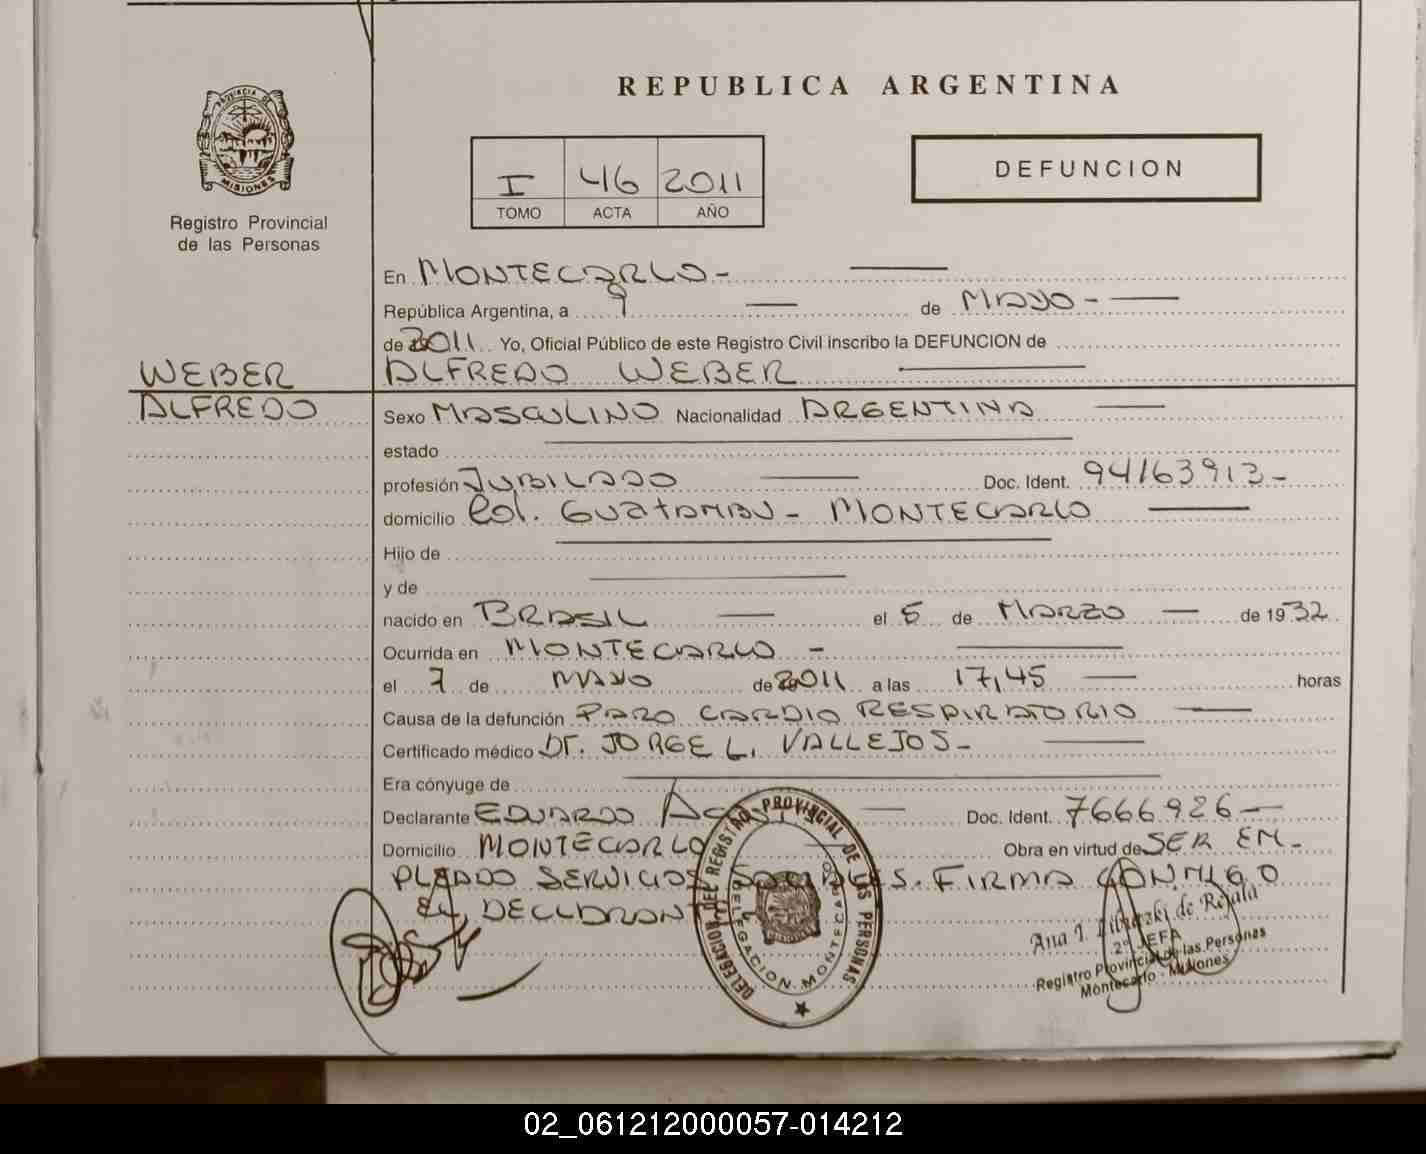 REPUBLICA ARGENTINA
PROVINCIA DE
MISIONES
Registro Provincial
de las Personas
I 46 2011
TOMO ACTA AÑO
DEFUNCION
En MONTECARLO-
República Argentina, a 9 de MAYO-
de 2011 Yo, Oficial Público de este Registro Civil inscribo la DEFUNCION de
WEBER ALFREDO WEBER
ALFREDO Sexo MASCULINO Nacionalidad ARGENTINA
estado
profesión JUBILADO Doc. Ident. 94163913-
domicilio Col. GUATAMBU- MONTECARLO
Hijo de
y de
nacido en BRASIL el 5 de MARZO de 1932
Ocurrida en MONTECARLO -
el 7 de MAYO de 2011 a las 17,45 horas
Causa de la defunción PARO CARDIO RESPIRATORIO
Certificado médico Dr. JORGE L. VALLEJOS-
Era cónyuge de
Declarante EDUARDO Doc. Ident. 7666.926-
Domicilio MONTECARLO Obra en virtud de SER EM-
PLEADO SERVICIOS SOCIALES. FIRMA CONMIGO
EL DECLARANTE
DELEGACION DEL REGISTRO PROVINCIAL DE LAS PERSONAS
DELEGACION MONTECARLO
Ana I. de
2º JEFA
Registro Provincial de las Personas
Montecarlo - Misiones
02_061212000057-014212